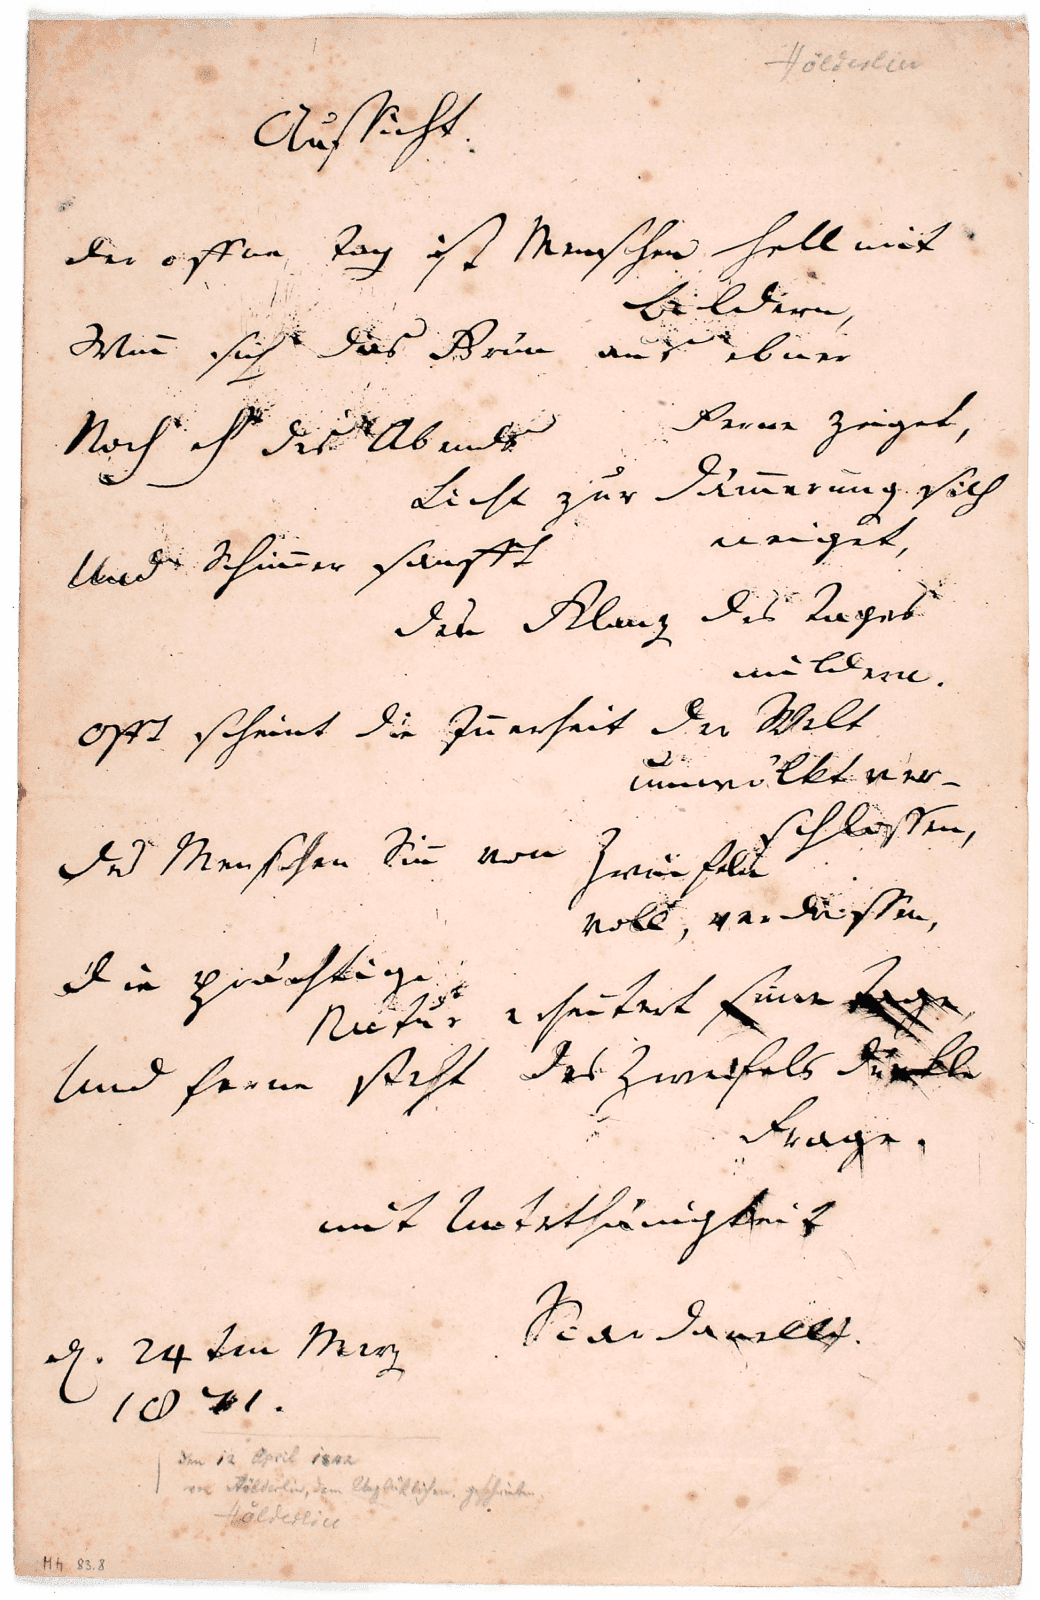 Hölderlin
Aussicht.
Der offne Tag ist Menschen hell mit
Bildern,
Wenn sich das Grün aus ebner
Ferne zeiget,
Noch eh' des Abends
Licht zur Dämmerung sich
neiget,
Und Schimmer sanfft
den Klang des Tages
mildern.
Offt scheint die Innerheit der Welt
umwölkt ver-
schlossen,
Des Menschen Sinn von Zweifeln
voll, verdrossen,
Die prächtige
Natur erheitert seine Tage,
Und ferne steht des Zweifels dunkle
Frage.
mit Unterthänigkeit
Scardanelli.
d. 24 ten Merz
1871.
Den 12 April 1842
von Hölderlin, dem Unglüklichen, geschrieben.
Hölderlin
Hh 83.8